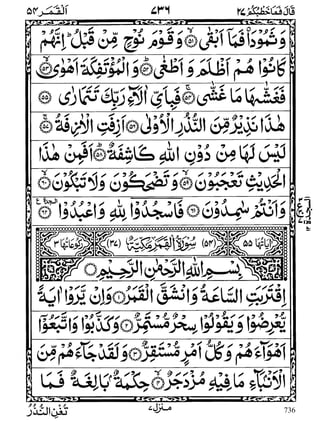 قَالَ فَمَا خَطْبُكُمْ ٢٧ ٧٣٦ اَلْقَمَر ٥٤
وَثَمُوْدَا۟ فَمَاۤ اَبْقٰى ۙ﴿٥١﴾ وَ قَوْمَ نُوْحٍ مِّنْ قَبْلُ ؕ اِنَّهُمْ
كَانُوْا هُمْ اَظْلَمَ وَ اَطْغٰى ؕ﴿٥٢﴾ وَ الْمُؤْتَفِكَةَ اَهْوٰى ۙ﴿٥٣﴾
فَغَشّٰىهَا مَا غَشّٰى ۚ﴿٥٤﴾ فَبِاَيِّ اٰلَآءِ رَبِّكَ تَتَمَارٰى ﴿٥٥﴾
هٰذَا نَذِيْرٌ مِّنَ النُّذُرِ الْاُوْلٰى ﴿٥٦﴾ اَزِفَتِ الْاٰزِفَةُ ۚ﴿٥٧﴾
لَيْسَ لَهَا مِنْ دُوْنِ اللّٰهِ كَاشِفَةٌ ؕ﴿٥٨﴾ اَفَمِنْ هٰذَا
الْحَدِيْثِ تَعْجَبُوْنَ ۙ﴿٥٩﴾ وَ تَضْحَكُوْنَ وَ لَا تَبْكُوْنَ ۙ﴿٦٠﴾
وَ اَنْتُمْ سٰمِدُوْنَ ﴿٦١﴾ فَاسْجُدُوْا لِلّٰهِ وَ اعْبُدُوْا ﴿٦٢﴾
اٰيَاتُهَا ٥٥ (٥٤) سُوْرَةُ الْقَمَرِ مَكِّيَّةٌ (٣٧) رُكُوْعَاتُهَا ٣
بِسْمِ اللّٰهِ الرَّحْمٰنِ الرَّحِيْمِ
اِقْتَرَبَتِ السَّاعَةُ وَ انْشَقَّ الْقَمَرُ ﴿١﴾ وَ اِنْ يَّرَوْا اٰيَةً
يُّعْرِضُوْا وَ يَقُوْلُوْا سِحْرٌ مُّسْتَمِرٌّ ﴿٢﴾ وَ كَذَّبُوْا وَ اتَّبَعُوْۤا
اَهْوَآءَهُمْ وَ كُلُّ اَمْرٍ مُّسْتَقِرٌّ ﴿٣﴾ وَ لَقَدْ جَآءَهُمْ مِّنَ
الْاَنْۢبَآءِ مَا فِيْهِ مُزْدَجَرٌ ۙ﴿٤﴾ حِكْمَةٌۢ بَالِغَةٌ فَمَا
تُغْنِ النُّذُرُ
منزل ٧
736